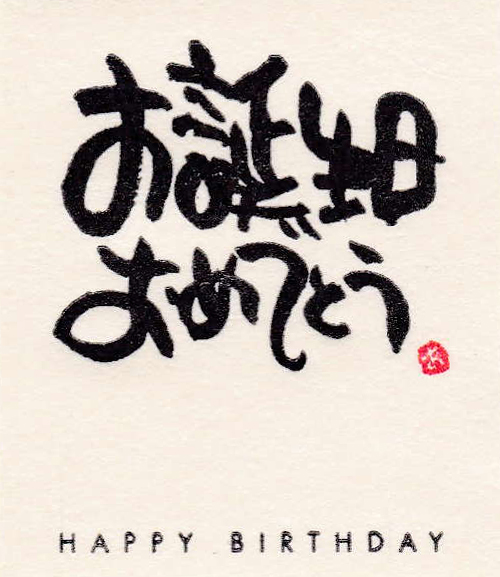 お誕生日
おめでとう
HAPPY BIRTHDAY